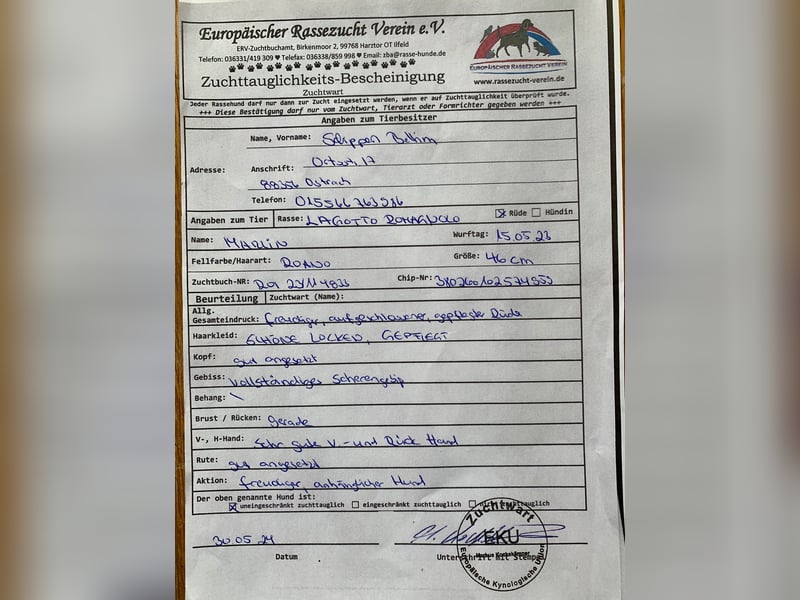 Europäischer Rassezucht Verein e.V.
ERV-Zuchtbuchamt, Birkenmoor 2, 99768 Harztor OT Ilfeld
Telefon: 036331/419 309 ♥ Telefax: 036338/859 998 ♥ Email: zba@rasse-hunde.de
EUROPÄISCHER RASSEZUCHT VEREIN
Zuchttauglichkeits-Bescheinigung
www.rassezucht-verein.de
Zuchtwart
Jeder Rassehund darf nur dann zur Zucht eingesetzt werden, wenn er auf Zuchttauglichkeit überprüft wurde.
+++ Diese Bestätigung darf nur vom Zuchtwart, Tierarzt oder Formrichter gegeben werden +++
Angaben zum Tierbesitzer
Name, Vorname:
Adresse: Anschrift: 17
88356 Ostrach
Telefon:
Angaben zum Tier Rasse: LAGOTTO ROMAGNOLO Rüde Hündin
Name: MARLIN Wurftag: 15.05.23
Fellfarbe/Haarart: ROANO Größe: 46 cm
Zuchtbuch-NR: Chip-Nr:
Beurteilung Zuchtwart (Name):
Allg.
Gesamteindruck: freudiger, aufgeschlossener, gepflegter Rüde
Haarkleid: SCHÖNE LOCKEN, GEPFLEGT
Kopf: gut angesetzt
Gebiss: vollständiges Scherengebiß
Behang: \
Brust / Rücken: gerade
V-, H-Hand: Sehr gute V.- und Rück Hand
Rute: gut angesetzt
Aktion: freudiger, anhänglicher Hund
Der oben genannte Hund ist:
uneingeschränkt zuchttauglich eingeschränkt zuchttauglich nicht zuchttauglich
30.05.24
Datum Unterschrift mit Stempel
Zuchtwart
EKU
Europäische Kynologische Union